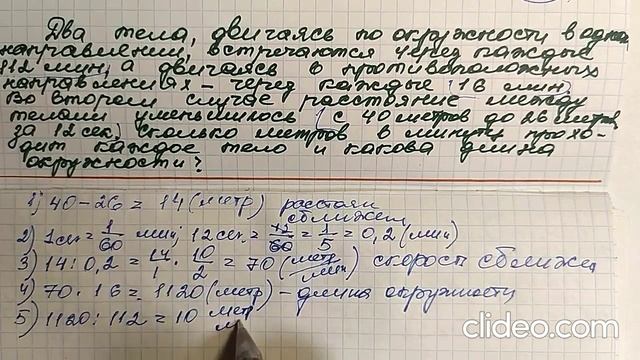 Два тела, двигаясь по окружности в одном
направлении, встречаются через каждые
112 мин, а двигаясь в противоположных
направлениях – через каждые 16 мин.
Во втором случае расстояние между
телами уменьшилось с 40 метров до 26 метров
за 12 сек. Сколько метров в минуту прохо-
дит каждое тело и какова длина
окружности?
1) 40 - 26 = 14 (метр) расстоян
сближен
2) 1 сек = 1/60 мин; 12 сек. = 12/60 = 1/5 = 0,2 (мин)
3) 14 : 0,2 = 14/1 · 10/2 = 70 (метр/мин) скорость сближе
4) 70 · 16 = 1120 (метр) – длина окружности
5) 1120 : 112 = 10 мет
м
clideo.com